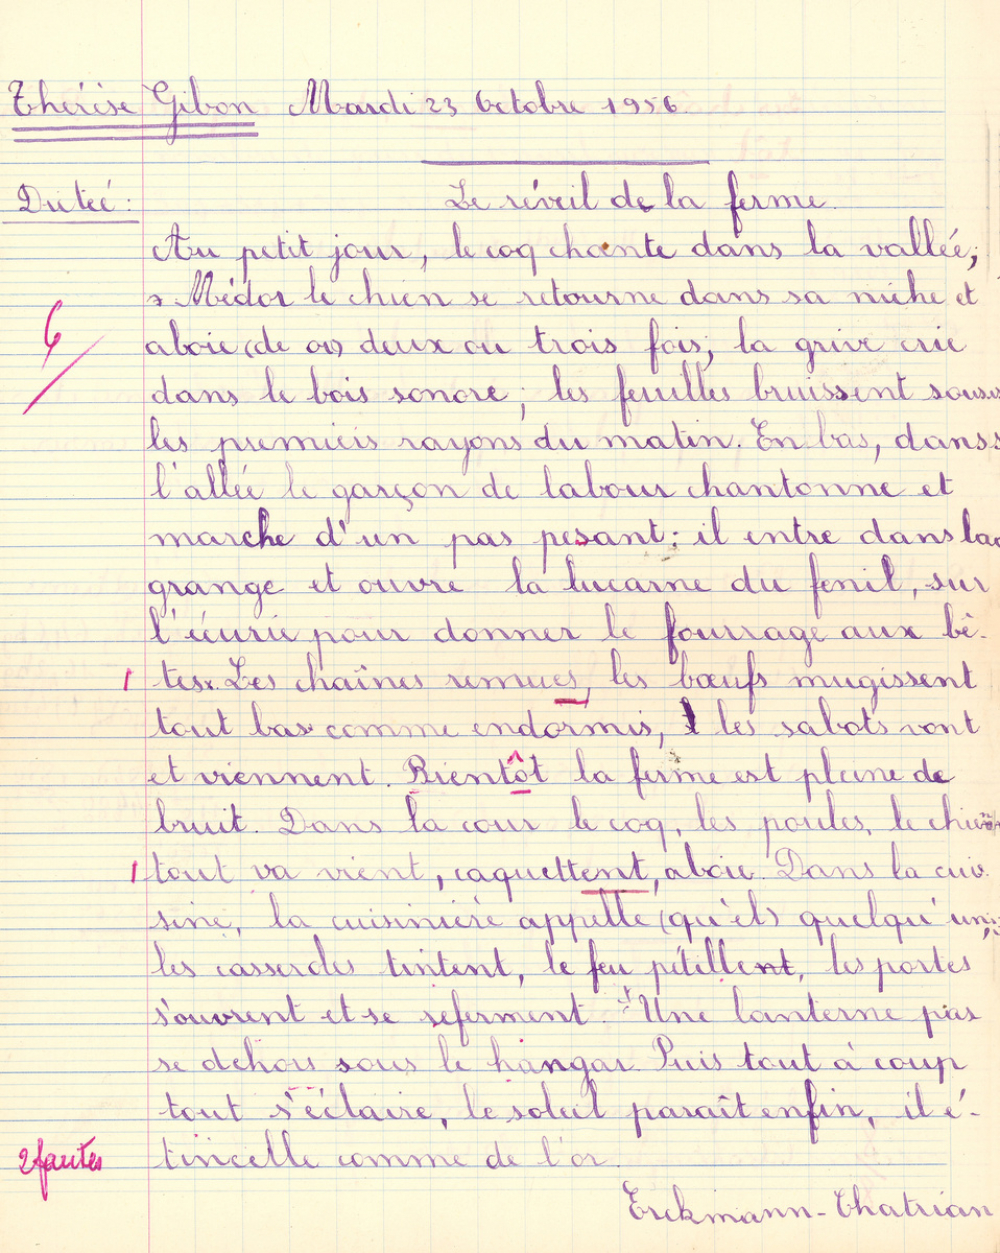 Thérèse Gibon Mardi 23 Octobre 1956
Dictée : Le réveil de la ferme
Au petit jour, le coq chante dans la vallée;
Médor le chien se retourne dans sa niche et
6
aboie (de ou) deux ou trois fois; la grive crie
dans le bois sonore; les feuilles bruissent sous
les premiers rayons du matin. En bas, dans
l'allée le garçon de labour chantonne et
marche d'un pas pesant; il entre dans la
grange et ouvre la lucarne du fenil, sur
l'écurie pour donner le fourrage aux bê-
1 tes. Les chaînes remues, les bœufs mugissent
tout bas comme endormis, les sabots vont
et viennent. Bientôt la ferme est pleine de
bruit. Dans la cour le coq, les poules, le chien
1 tout va vient, caquettent, aboie. Dans la cui-
sine, la cuisinière appelle (qu'el) quelqu'un,
les casseroles tintent, le feu pétille, les portes
s'ouvrent et se referment. Une lanterne pas
se dehors sous le hangar. Puis tout à coup
tout s'éclaire, le soleil paraît enfin, il é-
2 fautes tincelle comme de l'or.
Erckmann-Chatrian